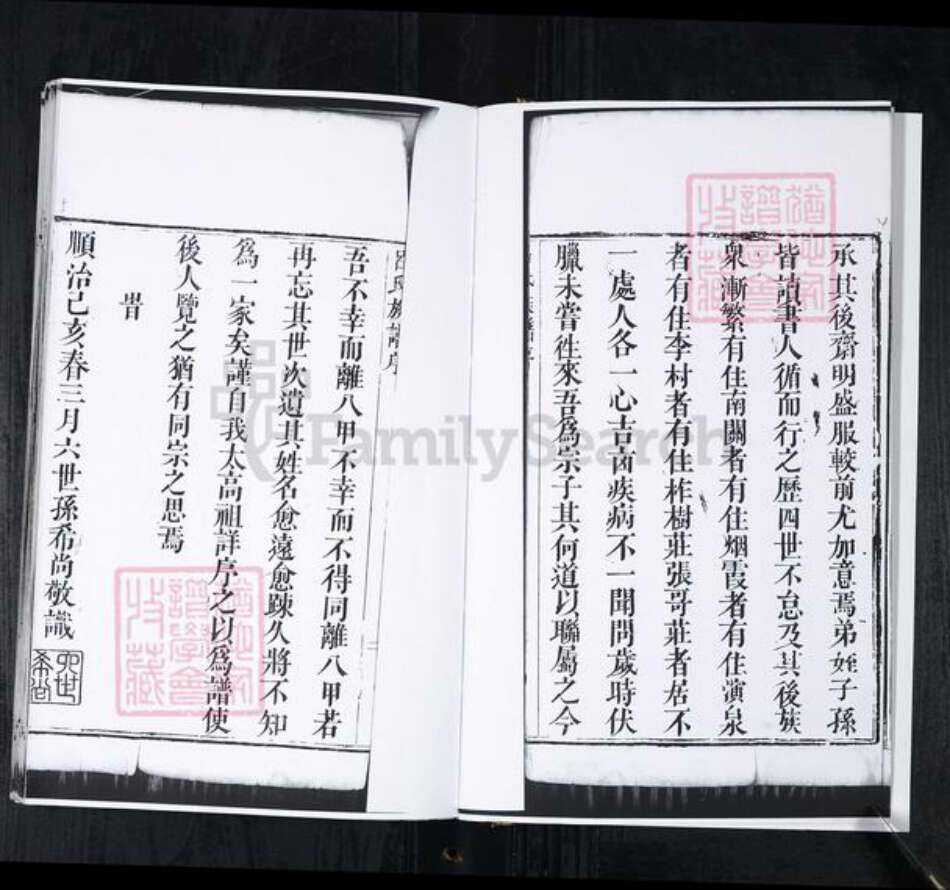 承其後齋明盛服較前尤加意焉弟姪子孫
皆讀書人循而行之歷四世不怠及其後族
衆漸繁有住南關者有住烟霞者有住演泉
者有住李村者有住柞樹莊張哥莊者居不
一處人各一心吉凶疾病不一聞問歲時伏
臘未嘗徃來吾爲宗子其何道以聯屬之今
呂氏族譜序
吾不幸而離八甲不幸而不得同離八甲若
再忘其世次遺其姓名愈遠愈踈久將不知
爲一家矣謹自我太高祖詳序之以爲譜使
後人覽之猶有同宗之思焉
旹
順治己亥春三月六世孫希尚敬識
六世
希尚
譜學會
收藏
FamilySearch